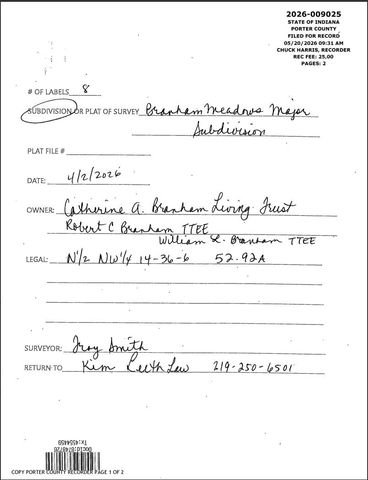 2026-009025
STATE OF INDIANA
PORTER COUNTY
FILED FOR RECORD
05/20/2026 09:31 AM
CHUCK HARRIS, RECORDER
REC FEE: 25.00
PAGES: 2
# OF LABELS 8
SUBDIVISION OR PLAT OF SURVEY Branham Meadows Major
Subdivision
PLAT FILE #
DATE: 4/2/2026
OWNER: Catherine A. Branham Living Trust
Robert C Branham TTEE
William L. Branham TTEE
LEGAL: N'/2 NW'/4 14-36-6 52.92A
SURVEYOR: Troy Smith
RETURN TO Kim Law 219-250-6501
Tx:4554458
COPY PORTER COUNTY RECORDER PAGE 1 OF 2